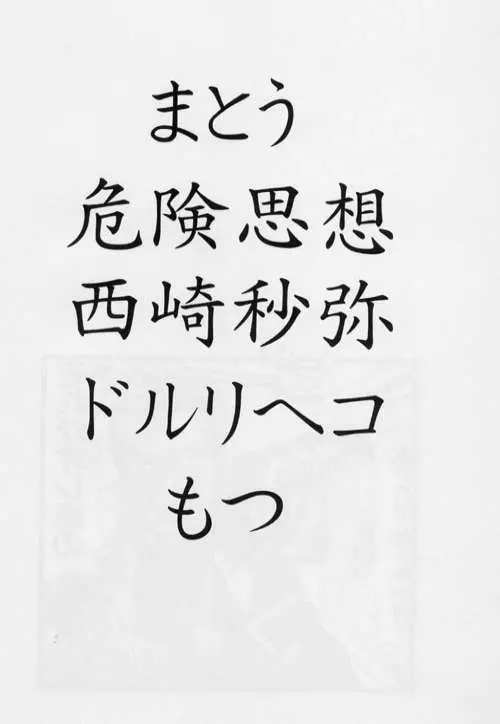 まとう
危険思想
西崎秒弥
ドルリヘコ
もつ